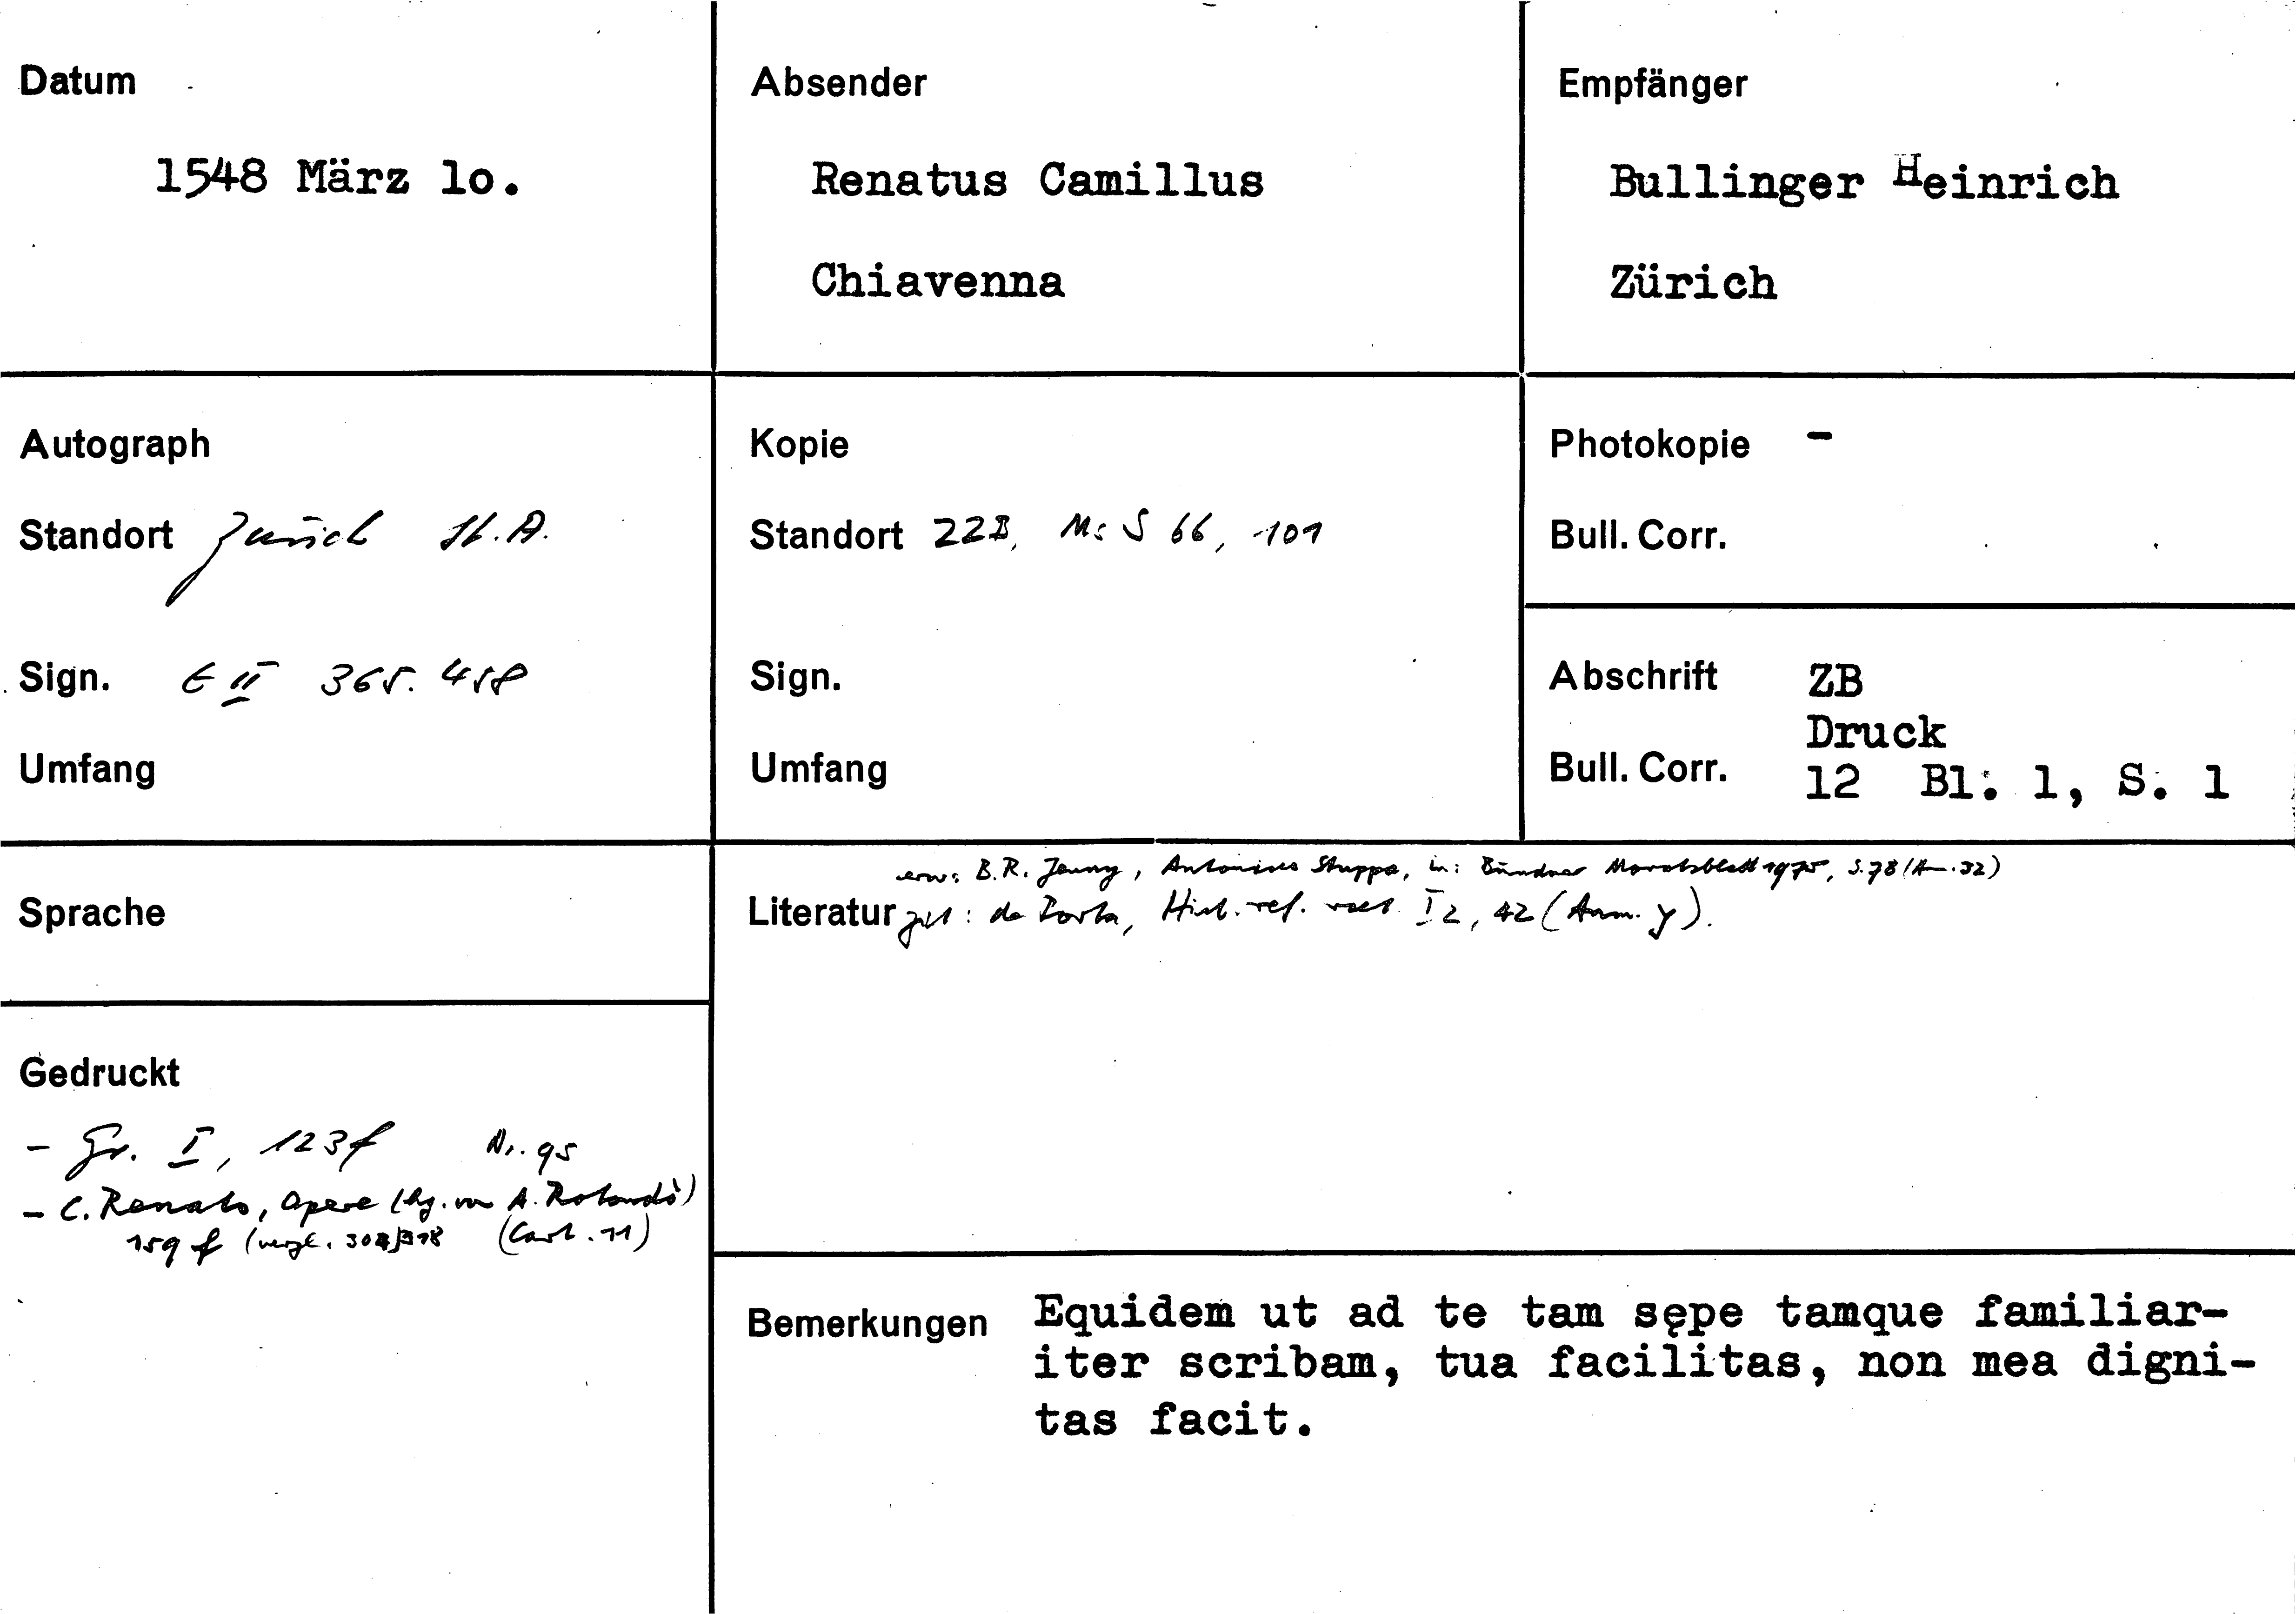 Datum
1548 März lo.
Absender
Renatus Camillus
Chiavenna
Empfänger
Bullinger Heinrich
Zürich
Autograph
Standort Zürich St.A.
Sign. E II 365. 458
Umfang
Kopie
Standort ZZB, Ms S 66, 101
Sign.
Umfang
Photokopie -
Bull. Corr.
Abschrift ZB
Druck
Bull. Corr. 12 Bl. 1, S. 1
Sprache
Gedruckt
- Gr. I, 123f Nr. 95
- C. Renato, Opere (hg. von A. Rotondò)
159 f (vergl. 318 (Cart. 11)
erw: B.R. Jenny, Antonius Stuppa, in: Bündner Monatsblatt 1975, S. 78 (Anm. 32)
Literatur zit: da Porta, Hist. ref. raet. I 2, 42 (Anm. y).
Bemerkungen Equidem ut ad te tam sępe tamque familiar-
iter scribam, tua facilitas, non mea digni-
tas facit.